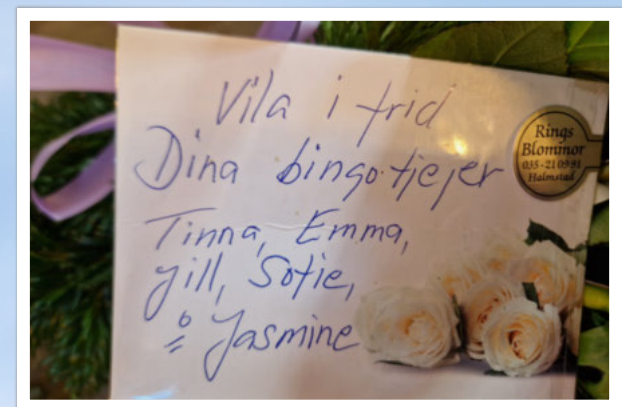 Vila i frid
Dina bingotjejer
Tinna, Emma,
Jill, Sofie,
o Jasmine
Rings
Blominor
035-210951
Halmstad